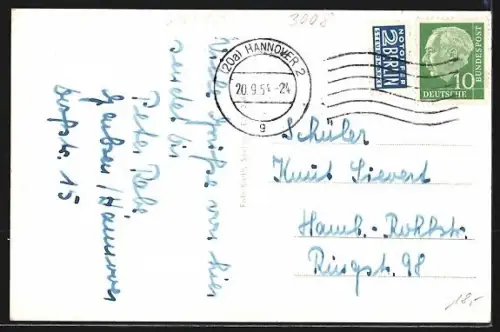 3008
(20a) HANNOVER 2
20.9.54.-24
g
NOTOPFER
2 BERLIN
STEUERMARKE
DEUTSCHE BUNDESPOST
10
Viele Grüße von hier
sendet dir
Peter
Garbsen/Hannover
15
Schüler
Knut Sievert
Hamb.-Rahlst.
Ringstr. 98
18,-